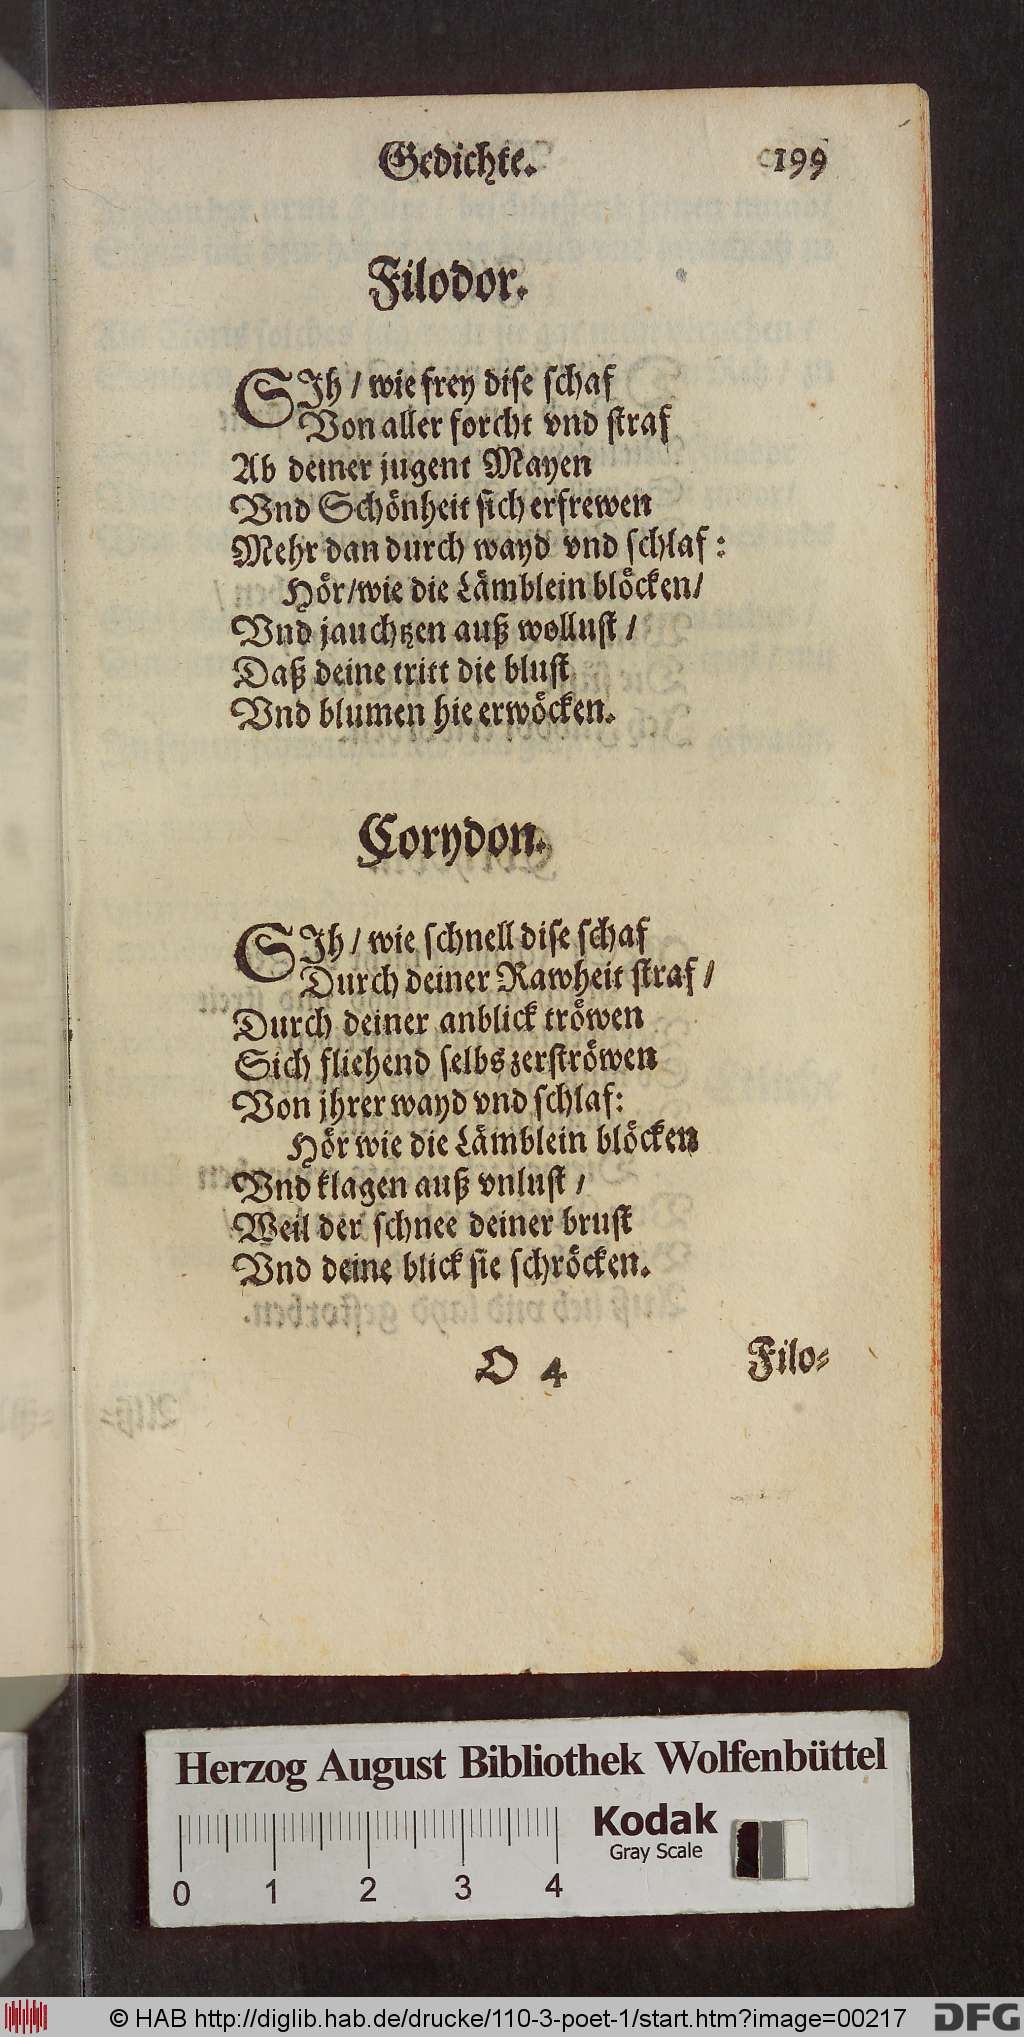 Gedichte. 199
Filodor.
SIh / wie frey dise schaf
Von aller forcht vnd straf
Ab deiner jugent Mayen
Vnd Schönheit sich erfrewen
Mehr dan durch wayd vnd schlaf :
Hör/wie die Lämblein blöcken/
Vnd jauchtzen auß wollust /
Daß deine tritt die blust
Vnd blumen hie erwöcken.
Corydon.
SIh / wie schnell dise schaf
Durch deiner Rawheit straf /
Durch deiner anblick tröwen
Sich fliehend selbs zerströwen
Von jhrer wayd vnd schlaf:
Hör wie die Lämblein blöcken
Vnd klagen auß vnlust /
Weil der schnee deiner brust
Vnd deine blick sie schröcken.
O 4 Filo=
Herzog August Bibliothek Wolfenbüttel
Kodak
Gray Scale
0 1 2 3 4
© HAB http://diglib.hab.de/drucke/110-3-poet-1/start.htm?image=00217 DFG